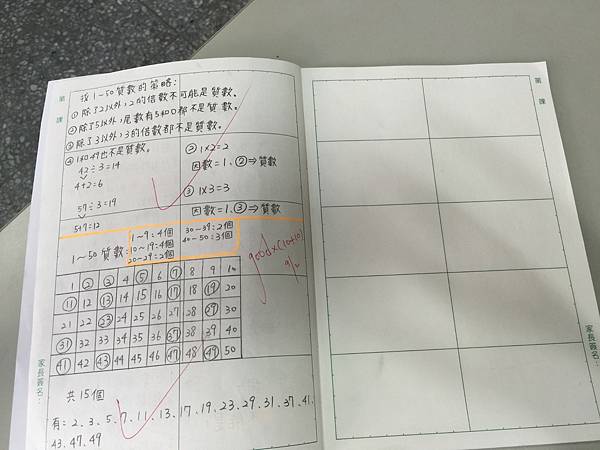 找1~50質數的策略：
①除了2以外，2的倍數不可能是質數。
②除了5以外，尾數有5和0都不是質數。
③除了3以外，3的倍數都不是質數。
④1和49也不是質數。
42÷3=14
4+2=6
57÷3=19
5+7=12
② 1×2=2
因數=1、②⇒質數
③ 1×3=3
因數=1、③⇒質數
1~9：4個 30~39：2個
1~50質數：10~19：4個 40~50：3個
20~29：2個
1 ② ③ 4 ⑤ 6 ⑦ 8 9 10
⑪ 12 ⑬ 14 15 16 ⑰ 18 ⑲ 20
21 22 ㉓ 24 25 26 27 28 ㉙ 30
㉛ 32 33 34 35 36 ㊲ 38 39 40
㊶ 42 ㊸ 44 45 46 ㊼ 48 ㊾ 50
good×(10+10)
9/2
共15個
有：2、3、5、7、11、13、17、19、23、29、31、37、41、
43、47、49
第 課
家長簽名：
第 課
家長簽名：